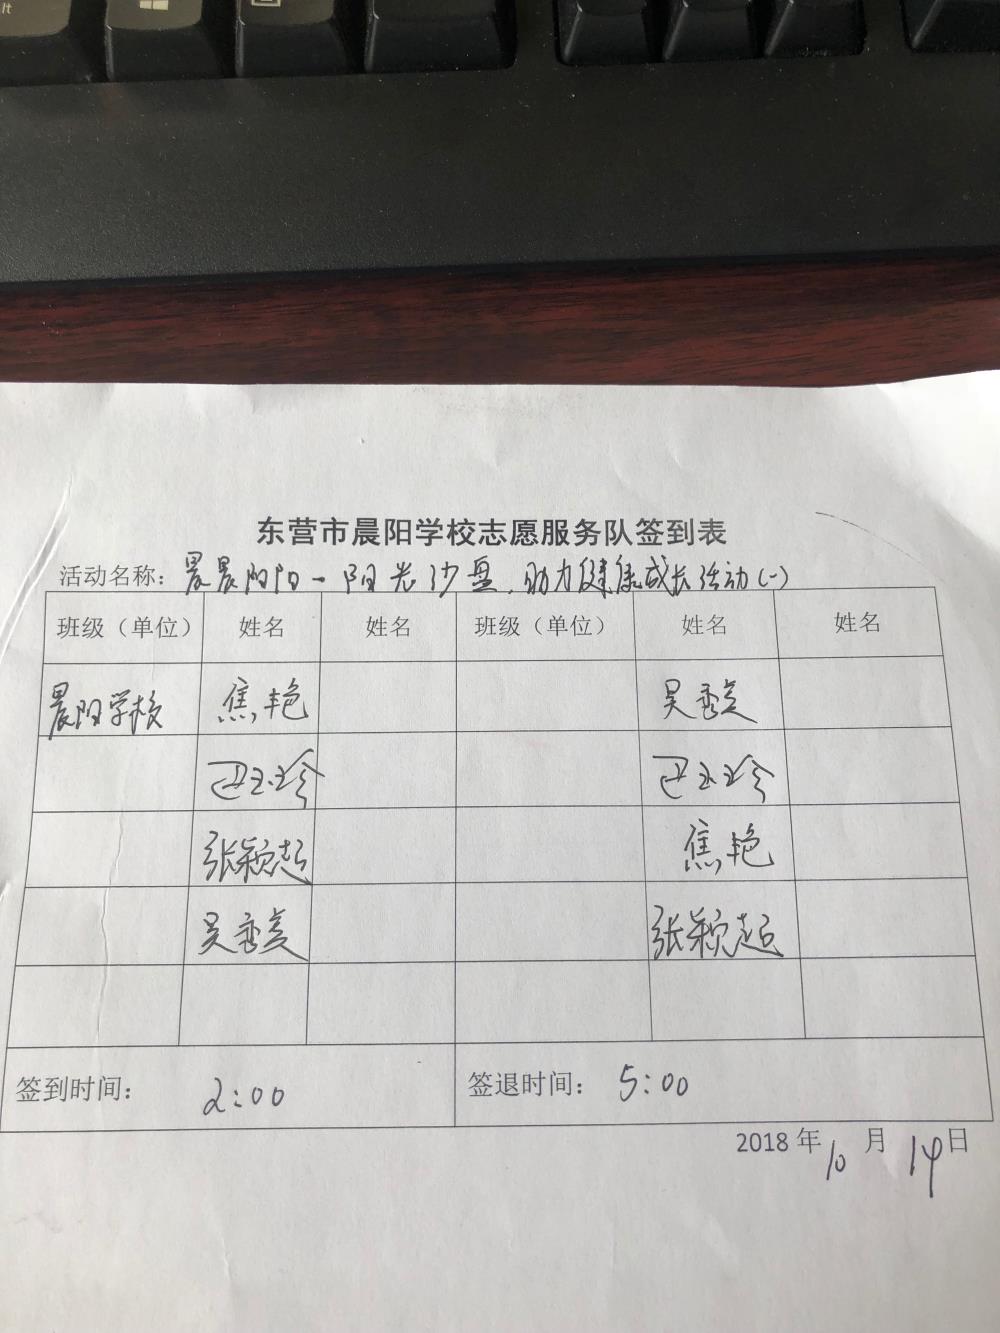 lt
东营市晨阳学校志愿服务队签到表
活动名称：晨晨阳阳-阳光沙盘,助力健康成长活动(一)
班级（单位） 姓名 姓名 班级（单位） 姓名 姓名
晨阳学校 焦艳 吴秀美
巴玉珍 巴玉珍
张颖超 焦艳
吴秀美 张颖超
签到时间： 2:00 签退时间： 5:00
2018年10月14日